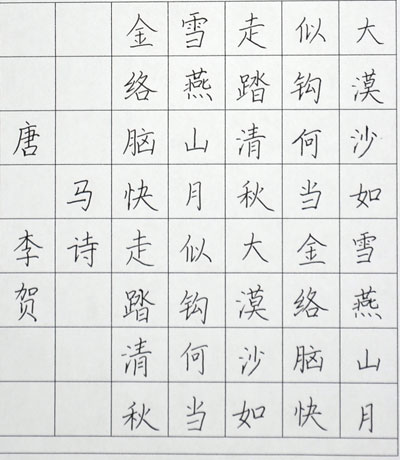 大漠沙如雪燕山月
似钩何当金络脑快
走踏清秋大漠沙如
雪燕山月似钩何当
金络脑快走踏清秋
马诗
唐李贺